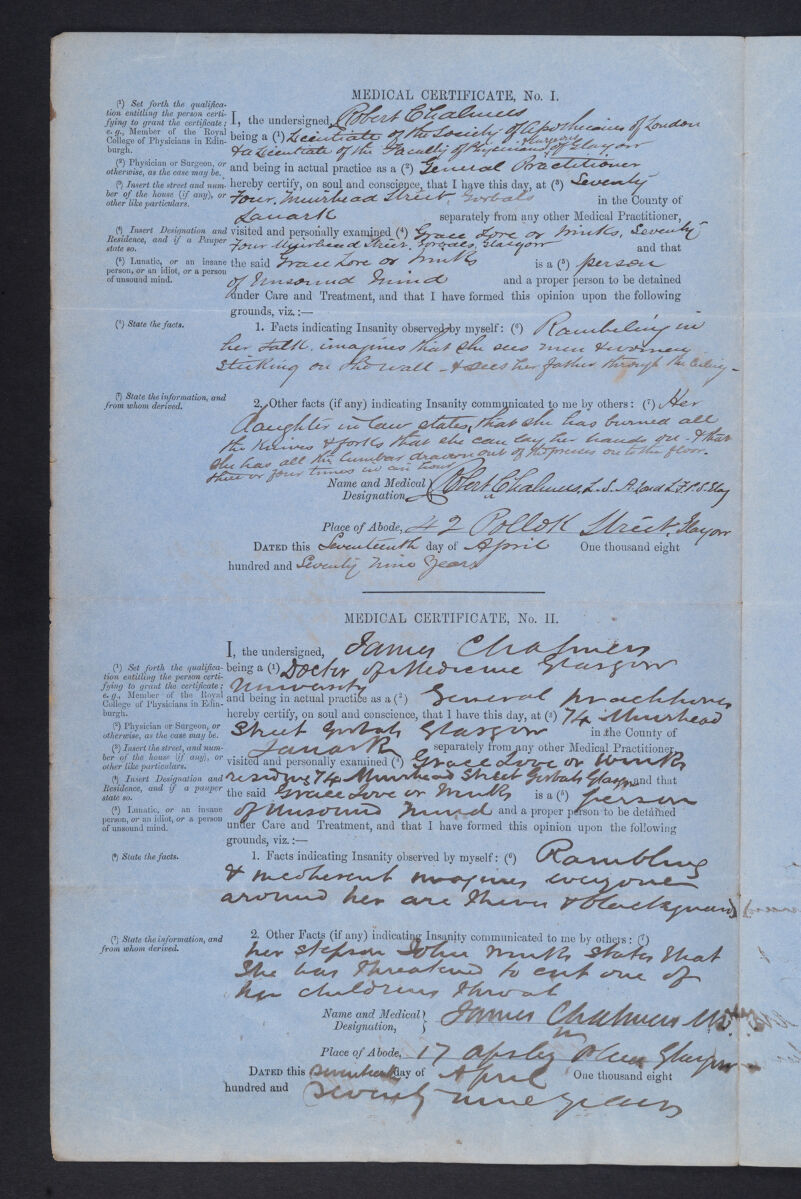 MEDICAL CERTIFICATE, No. I.
(¹) Set forth the qualifica-
tion entitling the person certi-
fying to grant the certificate;
e.g., Member of the Royal
College of Physicians in Edin-
burgh.
(²) Physician or Surgeon, or
otherwise, as the case may be.
(³) Insert the street and num-
ber of the house (if any), or
other like particulars.
(⁴) Insert Designation and
Residence, and if a Pauper
state so.
(⁵) Lunatic, or an insane
person, or an idiot, or a person
of unsound mind.
(⁶) State the facts.
(⁷) State the information, and
from whom derived.
I, the undersigned, Robert Chalmers
being a (¹) Licentiate of the Society of Apothecaries of London
& a Licentiate of the Faculty of Physicians & Surgeons of Glasgow
and being in actual practice as a (²) General Practitioner
hereby certify, on soul and conscience, that I have this day, at (³) Seventy
Four, Muirhead Street, Gorbals in the County of
Lanark separately from any other Medical Practitioner,
visited and personally examined (⁴) Grace Love or Winks, Seventy
Four Muirhead Street, Gorbals, Glasgow and that
the said Grace Love or Winks is a (⁵) person
of Unsound Mind and a proper person to be detained
under Care and Treatment, and that I have formed this opinion upon the following
grounds, viz.:—
1. Facts indicating Insanity observed by myself: (⁶) Rambeling in
her talk. imagines that she sees men & women
sticking on the wall - & sees her father through the ceiling -
2. Other facts (if any) indicating Insanity communicated to me by others: (⁷) Her
daughter in law states, that she has burned all
the knives & forks that she can lay her hands on - & that
she has all the lumbar drawn out of the presses on to the floor.
three or four times in an hour
Name and Medical Designation, Robert Chalmers, L.S.A. Lond L.F.P.S. Glag
Place of Abode, 42 Pollok Street, Glasgow
DATED this Seventeenth day of April One thousand eight
hundred and Seventy Nine Years
MEDICAL CERTIFICATE, No. II.
(¹) Set forth the qualifica-
tion entitling the person certi-
fying to grant the certificate;
e.g., Member of the Royal
College of Physicians in Edin-
burgh.
(²) Physician or Surgeon, or
otherwise, as the case may be.
(³) Insert the street, and num-
ber of the house (if any), or
other like particulars.
(⁴) Insert Designation and
Residence, and if a pauper
state so.
(⁵) Lunatic, or an insane
person, or an idiot, or a person
of unsound mind.
(⁶) State the facts.
(⁷) State the information, and
from whom derived.
I, the undersigned, James Chalmers
being a (¹) Doctor of Medicine Glasgow
University
and being in actual practice as a (²) General practitioner
hereby certify, on soul and conscience, that I have this day, at (³) 74 Muirhead
Street Gorbals Glasgow in the County of
Lanark separately from any other Medical Practitioner,
visited and personally examined (⁴) Grace Love or Winks
residing 74 Muirhead Street Gorbals Glasgow and that
the said Grace Love or Winks is a (⁵) person
of unsound mind and a proper person to be detained
under Care and Treatment, and that I have formed this opinion upon the following
grounds, viz.:—
1. Facts indicating Insanity observed by myself: (⁶) Rambling
& incoherent imagines everyone
around her are thieves & blackguards
2. Other Facts (if any) indicating Insanity communicated to me by others: (⁷)
her stepson John Winks states that
she has threatened to cut one of
her childrens throat
Name and Medical Designation, James Chalmers MD.
Place of Abode, 17 Apsley Place Glasgow
DATED this Seventeenth day of April One thousand eight
hundred and seventy nine years